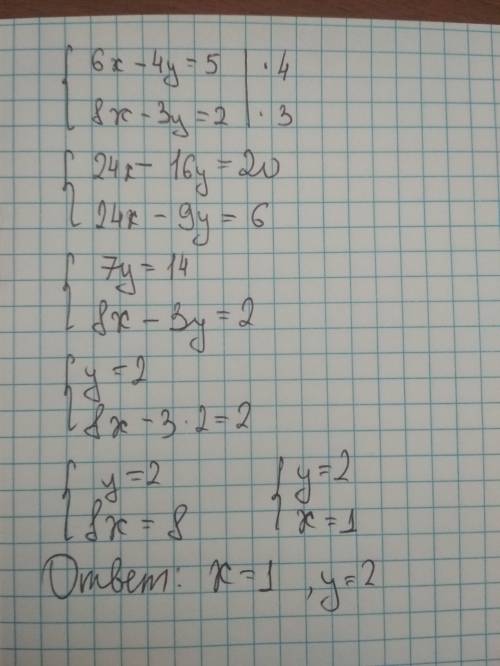 6x - 4y = 5 | · 4
8x - 3y = 2 | · 3
24x - 16y = 20
24x - 9y = 6
7y = 14
8x - 3y = 2
y = 2
8x - 3 · 2 = 2
y = 2
8x = 8
y = 2
x = 1
Ответ: x = 1 , y = 2